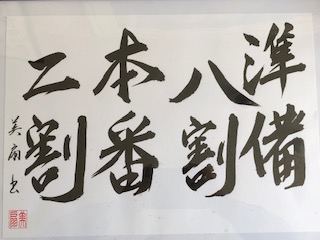 準備
八割
本番
二割
美扇书